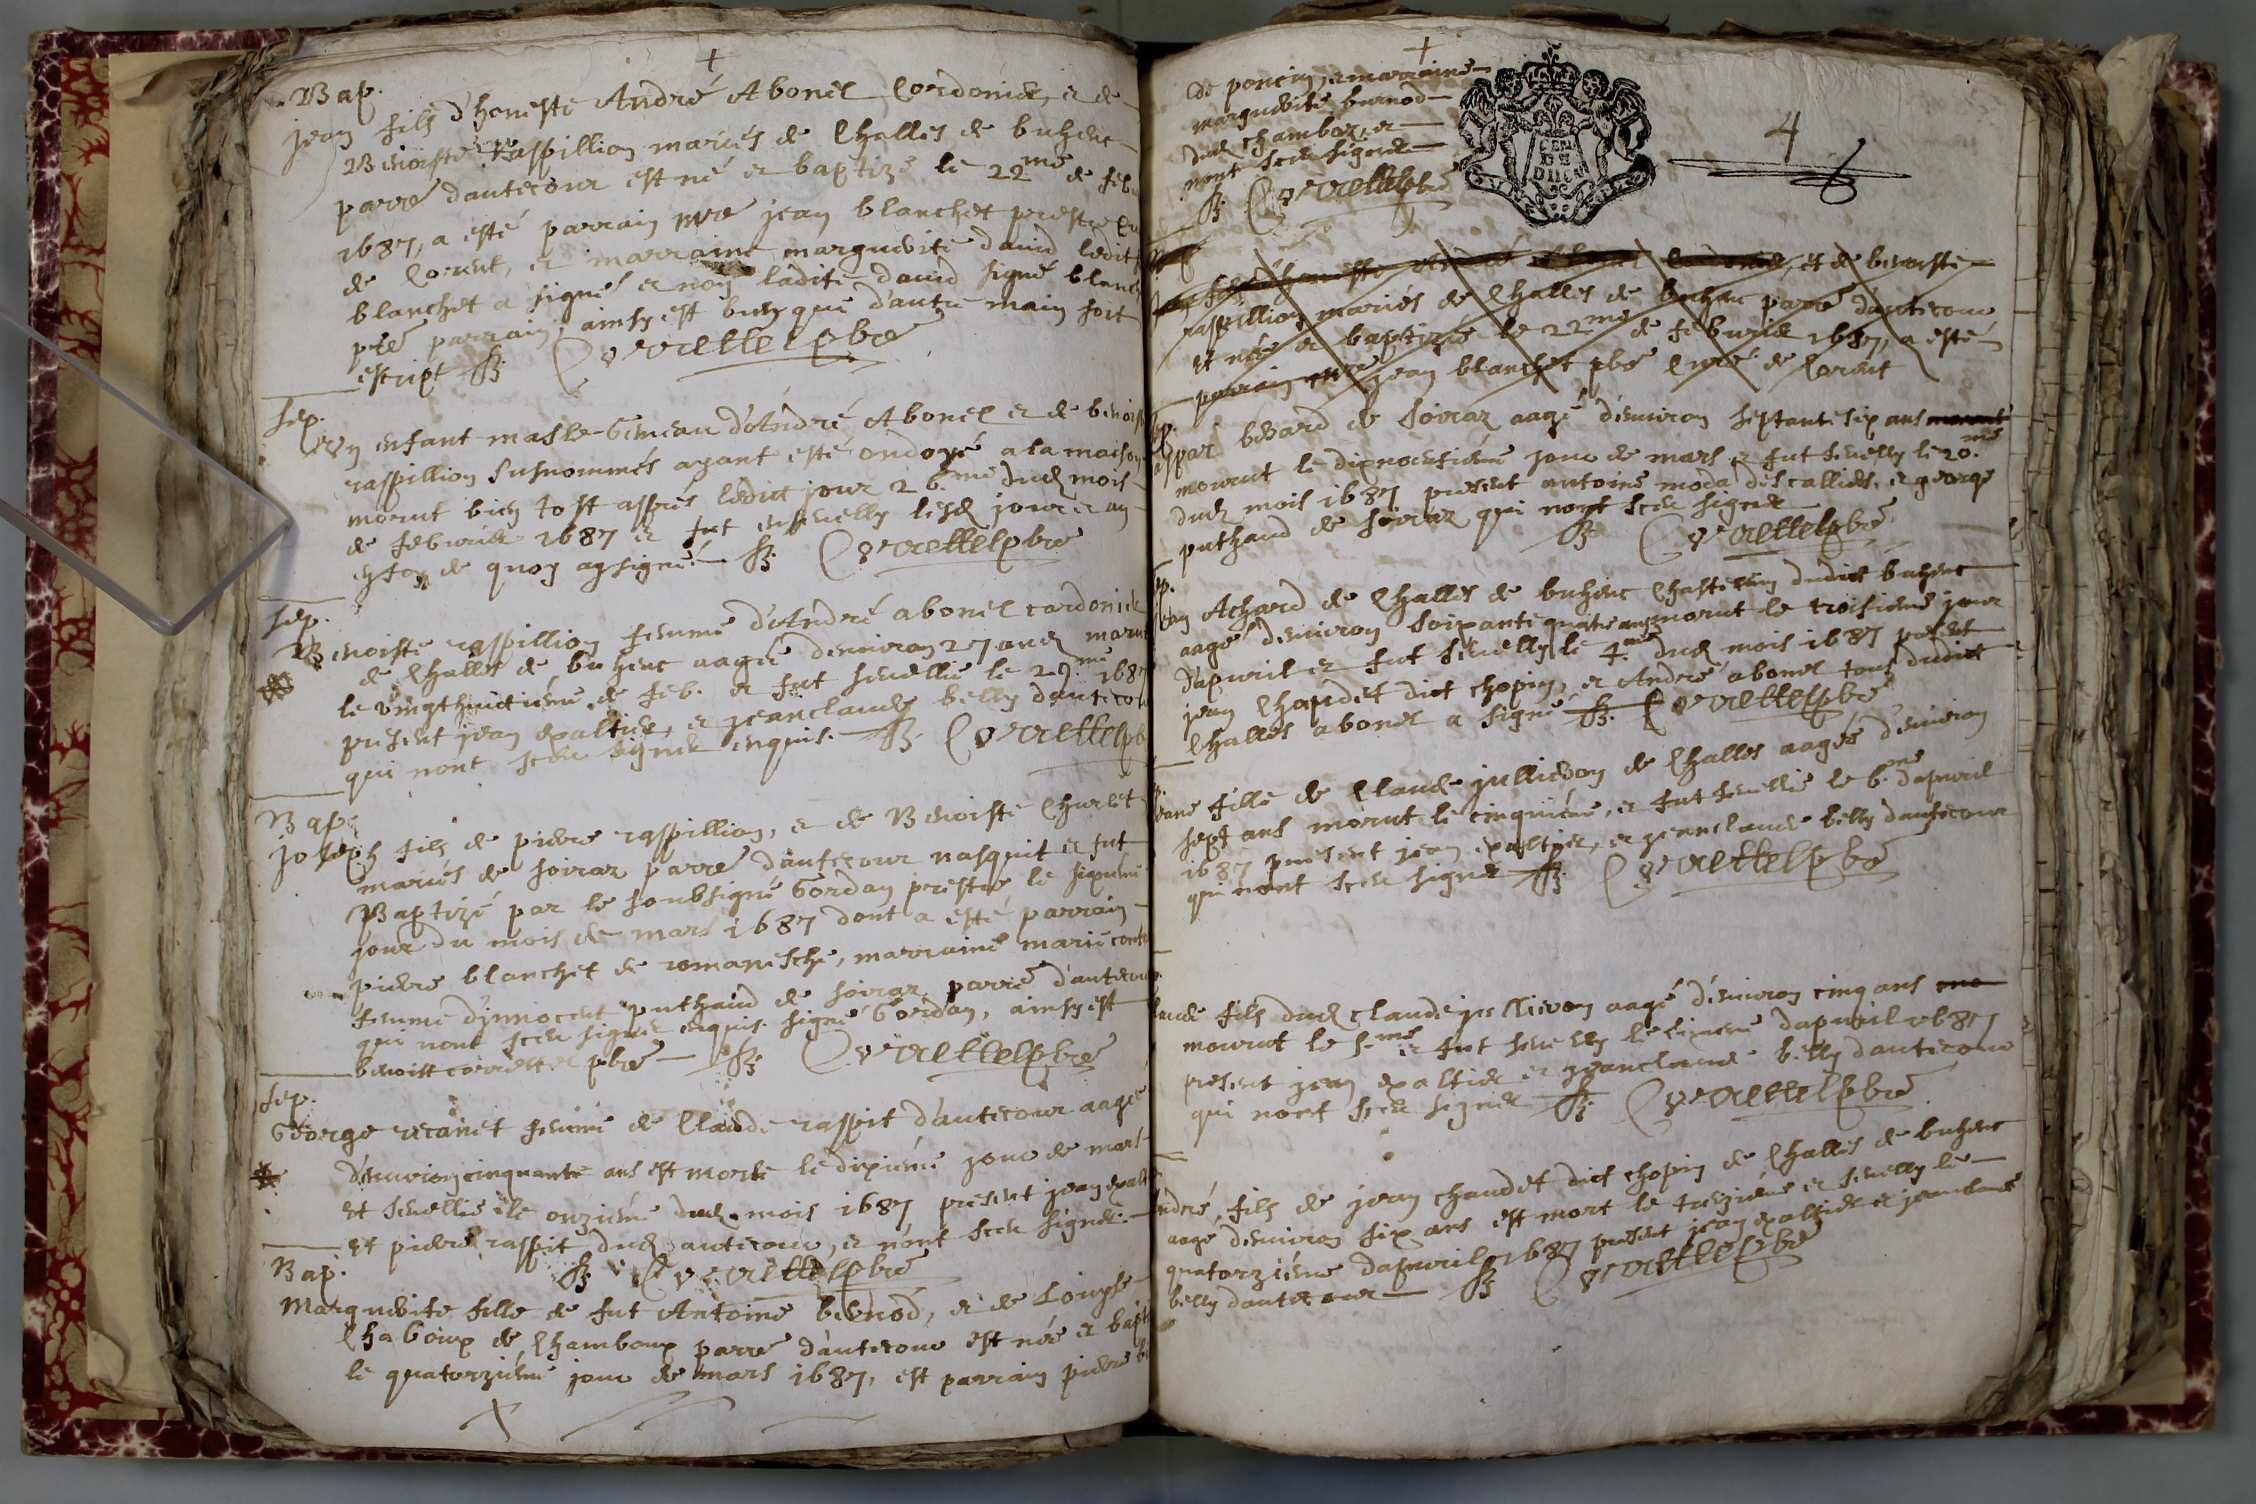 Bap.
jean fils d'honeste André Abonel Cordonier, et de
Benoiste Raspillion mariés de Challes de buhenc
parre dantecour est né et baptizé le 22me de feb
1687, a esté parrain mre jean blanchet prestre
de Corent, et marraine marguerite david ledit
blanchet a signé et non ladite david signé blanch
ptre parrain, ainsy est bien que d'autre main soit
escript
Correttel pbre
Sep.
Un enfant masle Gemeau d'André Abonel et de benois
raspillion susnommés ayant esté ondoyé a la maison
morut bien tost aspres ledict jour 26.me dud mois
de febvrier 1687 et fut ensevelly lesd jour et an
en foy de quoy ay signé
Correttel pbre
Sep.
Benoiste raspillion femme d'André abonel cordonier
de Challes de buhenc aagée denviron 27 ans morut
le vingthuictieme de feb. et fut sevellie le 29me 1687
present jean expaltier, et jeanclaude belly dantecour
qui nont sceu signer enquis.
Correttel pb
Bap.
Joseph fils de pierre raspillion, et de Benoiste Churlet
mariés de soiraz parre dantecour nasquit et fut
Baptizé par le soubsigné Gordan prestre le sixieme
jour du mois de mars 1687 dont a esté parrain
pierre blanchet de romanesche, marraine marie
femme d'jnnocent puthaud de soiraz parre dantecour
qui nont sceu signer enquis. signé Gordan, ainsy est
benoist correttel pbre
Correttel pbre
Sep.
George recanet femme de Claude raspit d'antecour aagée
d'environ cinquante ans est morte le dixieme jour de mars
et sevellie le onzieme dud mois 1687 present jean expalt
et pierre raspit dud antecour, et n'ont sceu signer.
Correttel pbre
Bap.
Marguerite fille de fut Antoine bernod, et de Louyse
Chaboux de Chamboux parre dantecour est née et bapt
le quatorzieme jour de mars 1687, est parrain pierre
de poncin, et marraine
marguerite burnod
dud chamboz, et
nont sceu signer
Correttel pbre
GEN
DE
4
et de benoiste
raspillion mariés de Challes de buhenc parre d'antecour
et née et baptizée le 22me de febvrier 1687, a esté
parrain mre jean blanchet pbre Curé de Corent
bevard de soiraz aagé d'environ septante six ans
mourut le dixneufvieme jour de mars et fut sevelly le 20.me
dud mois 1687 present antoine moda des calliers, et george
puthaud de soiraz qui nont sceu signer
Correttel pbre
Achard de Challes de buhenc Chastelain dudict buhenc
aagé denviron soixante quatre ans morut le troisieme jour
d'apvril et fut sevelly le 4.me dud mois 1687 present
jean Chaudet dict chopin, et André abonel tous dudict
Challes abonel a signé
Correttel pbre
fille de Claude jullieron de Challes aagée d'environ
sept ans morut le cinquieme, et fut sevellie le 6.me dapvril
1687 present jean expaltier, et jeanclaude belly dantecour
qui nont sceu signer
Correttel pbre
fils dud claude jullieron aagé d'environ cinq ans
mourut le s.me et fut sevelly le dapvril 1687
present jean expaltier et jeanclaude belly dantecour
qui nont sceu signer
Correttel pbre
André, fils de jean chaudet dict chopin de Challes de buhenc
aagé denviron six ans est mort le treizieme et sevelly le
quatorzieme dapvril 1687 present jean expaltier et jeanclaude
belly dantecour
Correttel pbre